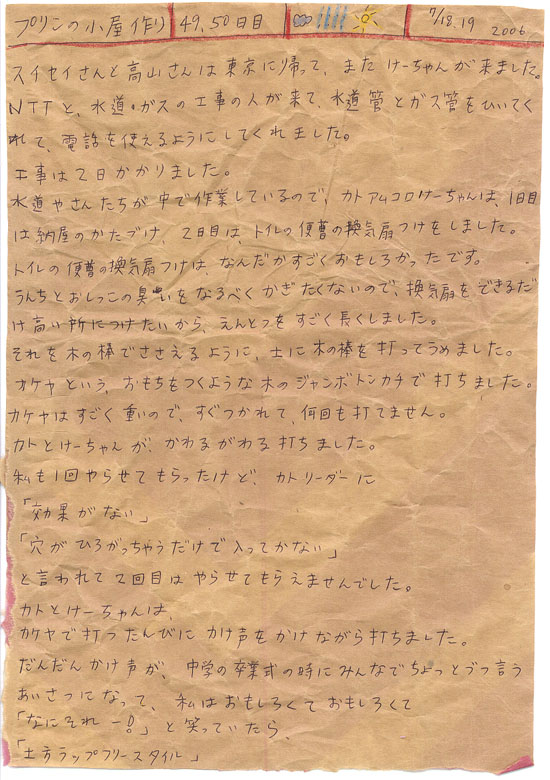 プリンの小屋作り 49,50日目 7/18.19 2006
スイセイさんと高山さんは東京に帰って、またけーちゃんが来ました。
NTTと、水道・ガスの工事の人が来て、水道管とガス管をひいてく
れて、電話を使えるようにしてくれました。
工事は2日かかりました。
水道やさんたちが中で作業しているので、カトアムコロけーちゃんは、1日目
は納屋のかたづけ、2日目は、トイレの便曹の換気扇つけをしました。
トイレの便曹の換気扇つけは、なんだかすごくおもしろかったです。
うんちとおしっこの臭いをなるべくかぎたくないので、換気扇をできるだ
け高い所につけたいから、えんとつをすごく長くしました。
それを木の棒でささえるように、土に木の棒を打ってうめました。
オケヤという、おもちをつくような木のジャンボトンカチで打ちました。
カケヤはすごく重いので、すぐつかれて、何回も打てません。
カトとけーちゃんが、かわるがわる打ちました。
私も1回やらせてもらったけど、カトリーダーに
「効果がない」
「穴がひろがっちゃうだけで入ってかない」
と言われて2回目はやらせてもらえませんでした。
カトとけーちゃんは、
カケヤで打つたんびにかけ声をかけながら打ちました。
だんだんかけ声が、中学の卒業式の時にみんなでちょっとづつ言う
あいさつになって、私はおもしろくておもしろくて
「なにそれー!」と笑っていたら、
「土方ラップフリースタイル」